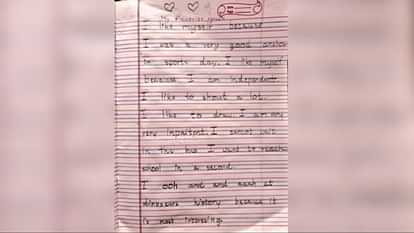 My Favourite
I like myself because
I was a very good
in sports day. I like myself
because I am independent
I like to shout a lot.
I like to draw. I am
very impaitent. I cannot wait
in the bus I want to reach
school in a second.
I ooh and and aaah at
dinosaurs history because it
is most intresting.